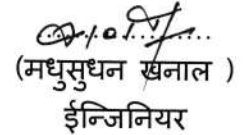 (मधुसुधन खनाल )
ईन्जिनियर